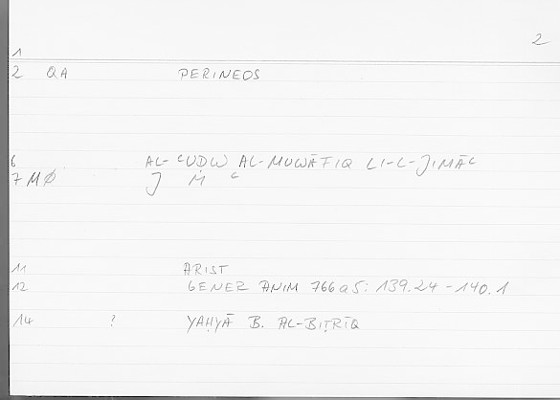 2
1
2 QA PERINEOS
6 AL-ʿUḌW AL-MUWĀFIQ LI-L-JIMĀʿ
7 MØ J M ʿ
11 ARIST
12 GENEZ ANIM 766a5: 139.24-140.1
14 ? YAḤYĀ B. AL-BIṬRĪQ